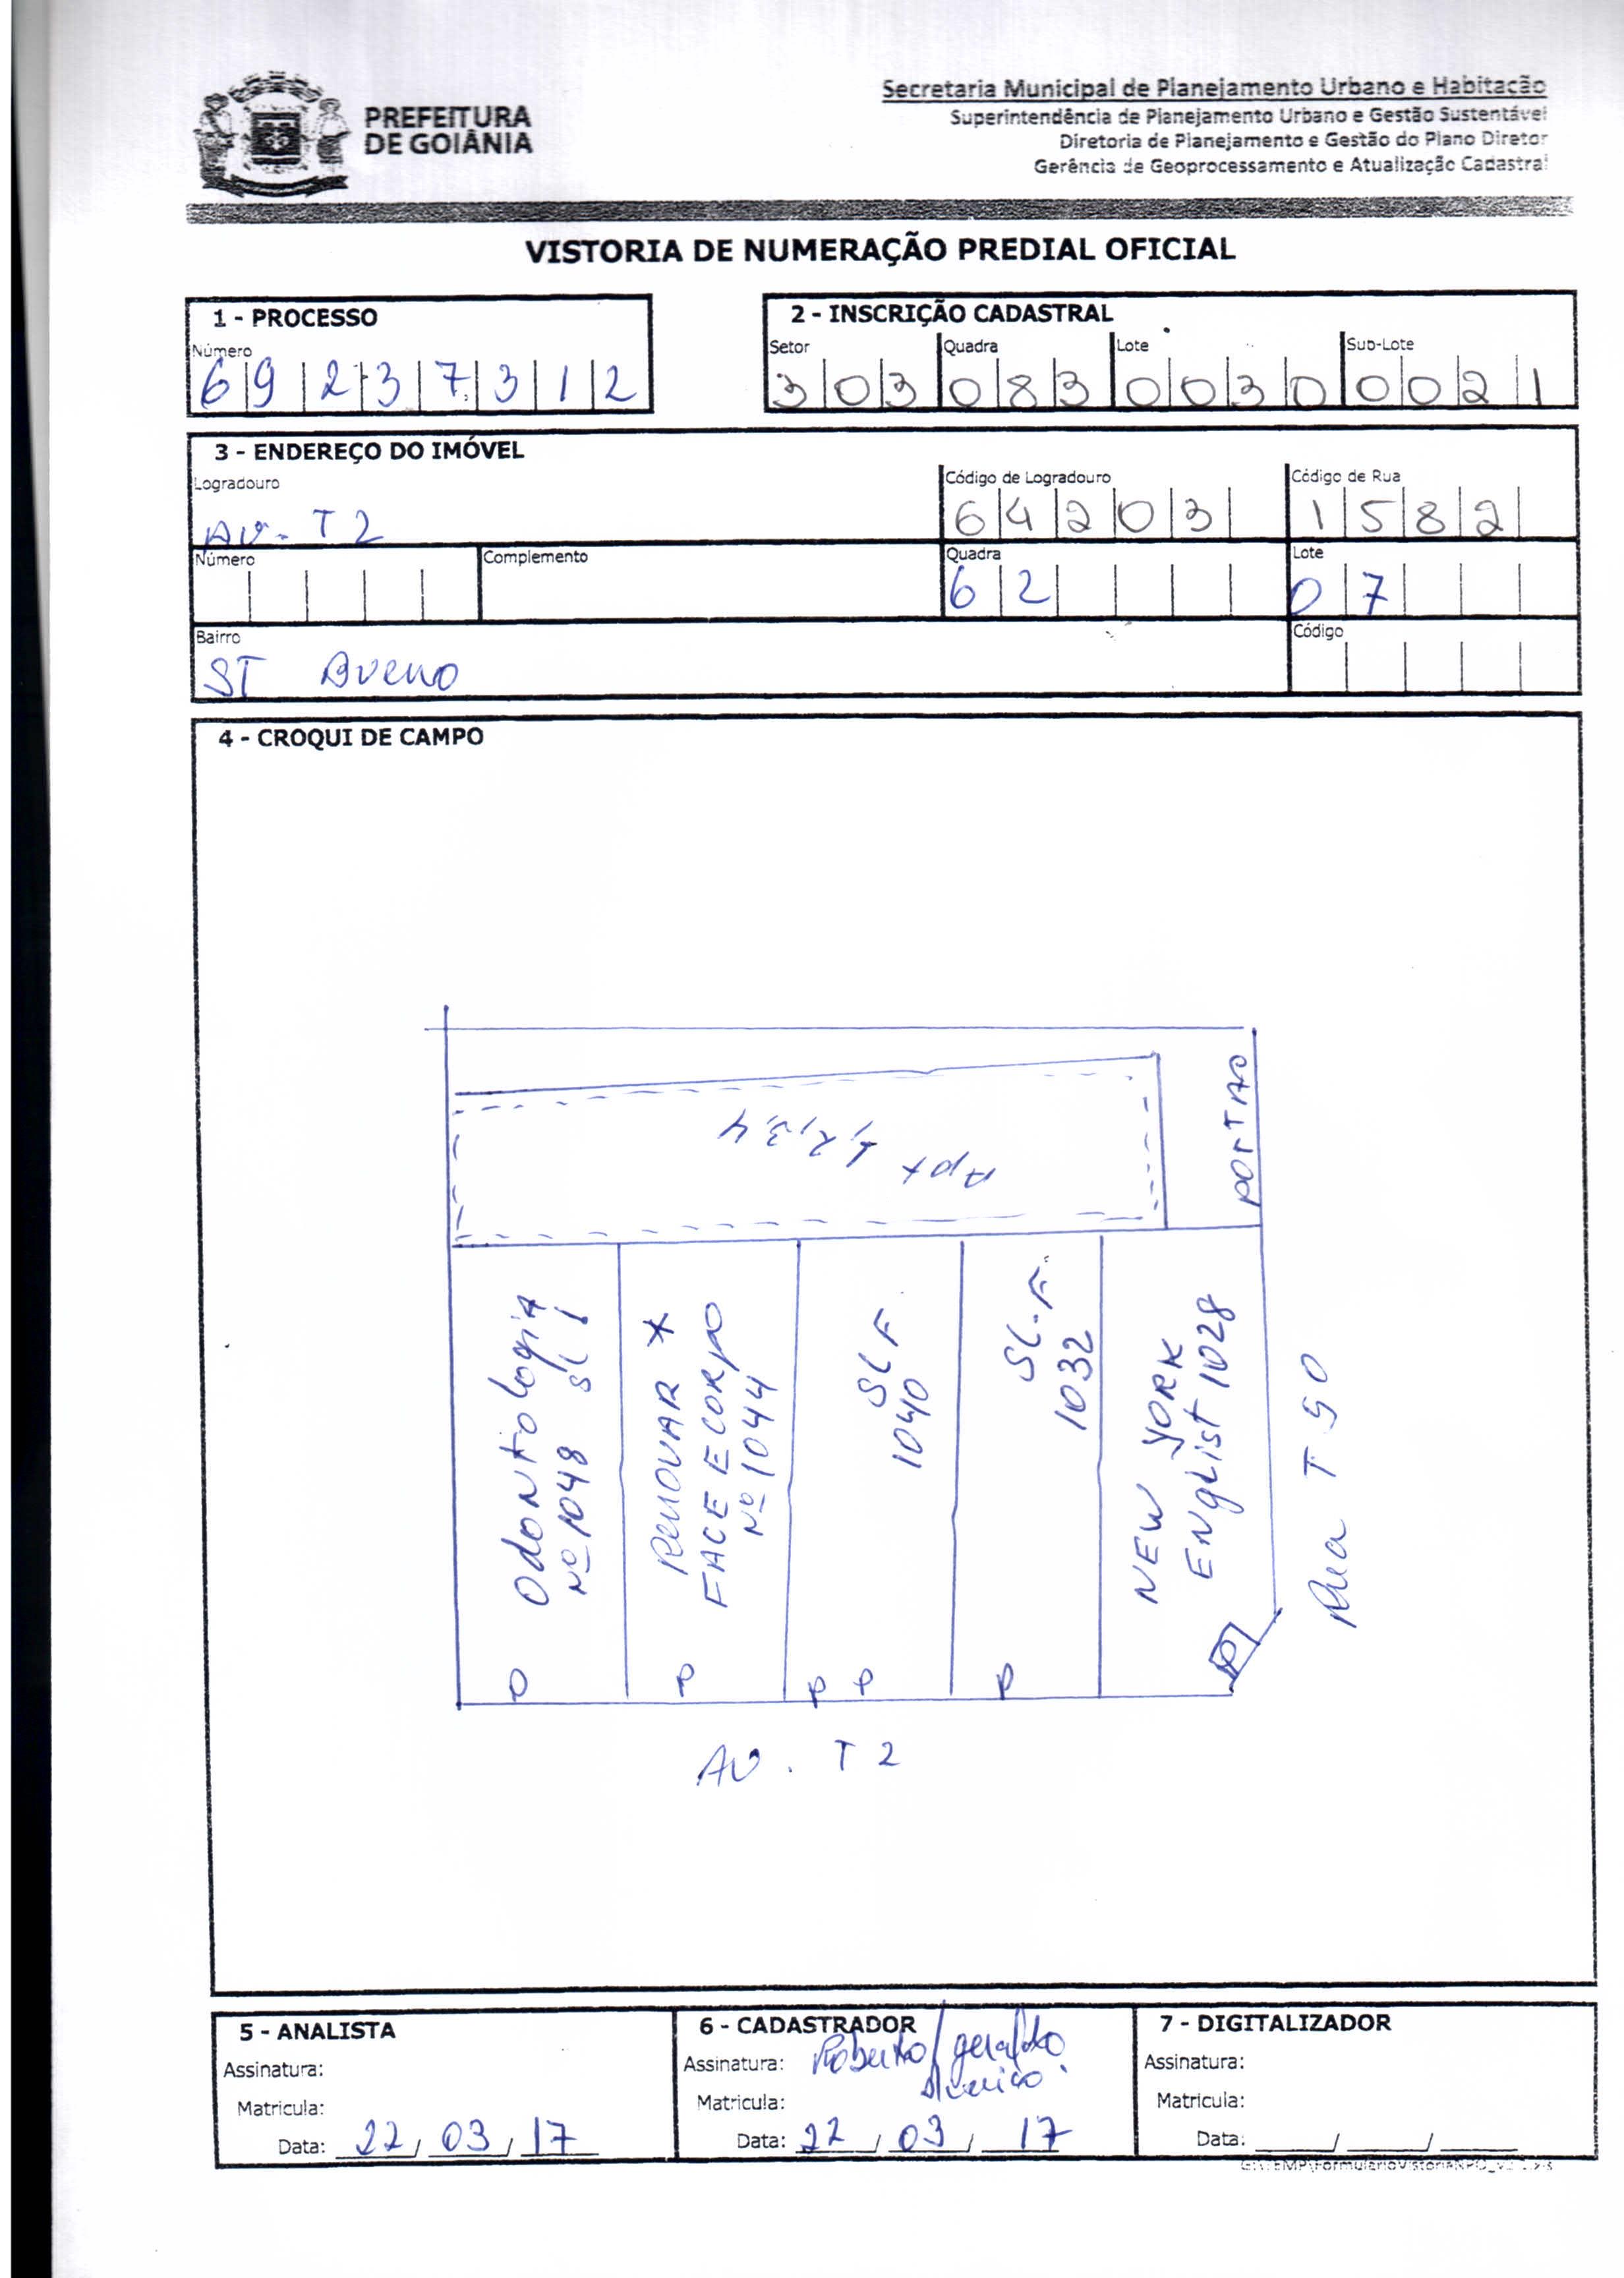 PREFEITURA
DE GOIÂNIA
Secretaria Municipal de Planejamento Urbano e Habitação
Superintendência de Planejamento Urbano e Gestão Sustentável
Diretoria de Planejamento e Gestão do Plano Diretor
Gerência de Geoprocessamento e Atualização Cadastral
VISTORIA DE NUMERAÇÃO PREDIAL OFICIAL
1 - PROCESSO
Número
69237312
2 - INSCRIÇÃO CADASTRAL
Setor Quadra Lote Sub-Lote
303 083 0030 0021
3 - ENDEREÇO DO IMÓVEL
Logradouro Código de Logradouro Código de Rua
AV. T2 64203 1582
Número Complemento Quadra Lote
62 07
Bairro Código
ST Bueno
4 - CROQUI DE CAMPO
Apt 1,2,3,4
PORTAO
Odontologia
Nº 1048 SL 1
RENOVAR *
FACE E CORPO
Nº 1044
SL F
1040
SL-F.
1032
NEW YORK
ENglist 1028
Rua T 50
P P P P
AV. T2
5 - ANALISTA
Assinatura:
Matricula:
Data: 22/03/17
6 - CADASTRADOR
Assinatura: Roberto/geraldo
Matricula:
Data: 22/03/17
7 - DIGITALIZADOR
Assinatura:
Matricula:
Data: ___/___/___